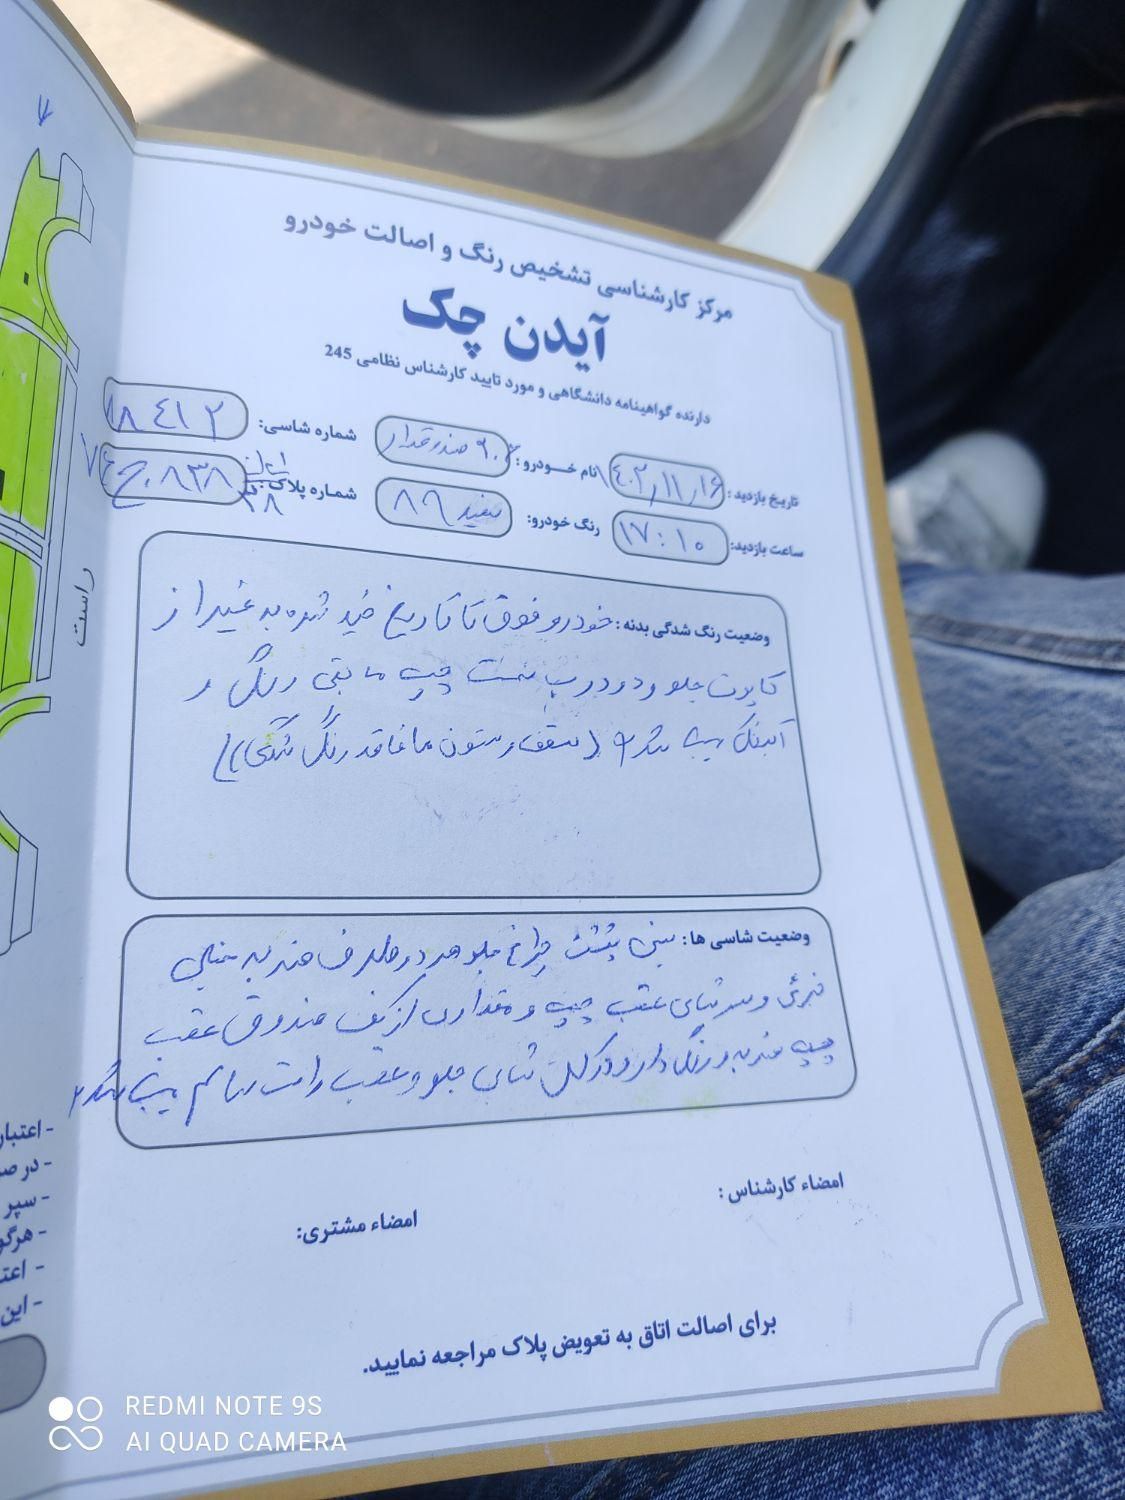 مرکز کارشناسی تشخیص رنگ و اصالت خودرو
آیدن چک
دارنده گواهینامه دانشگاهی و مورد تایید کارشناس نظامی 245
تاریخ بازدید: ۱۴۰۲/۱۱/۱۶ نام خـــودرو: صندوقدار شماره شاسی: ۴۱۲
ساعت بازدید: ۱۷:۱۰ رنگ خودرو: سفید ۸۹ شماره پلاک: ۸۳۸
ایران
راست
وضعیت رنگ شدگی بدنه: خودرو فوق تا تاریخ قید شده به غیر از
کاپوت جلو و دو درب سمت چپ مابقی رنگ و
آبرنگ می باشد (سقف و ستون ها فاقد رنگ شدگی)
وضعیت شاسی ها: سینی پشت چراغ جلو هر دو طرف ضربه خیلی
جزئی و سر شاسی عقب چپ و مقداری از کف صندوق عقب
چپ ضربه و رنگ دارد و در کل شاسی جلو و عقب راست سالم می باشد
امضاء کارشناس:
امضاء مشتری:
برای اصالت اتاق به تعویض پلاک مراجعه نمایید.
- اعتبار
- در ص
- سپر
- هرگو
- اعت
- این
REDMI NOTE 9S
AI QUAD CAMERA